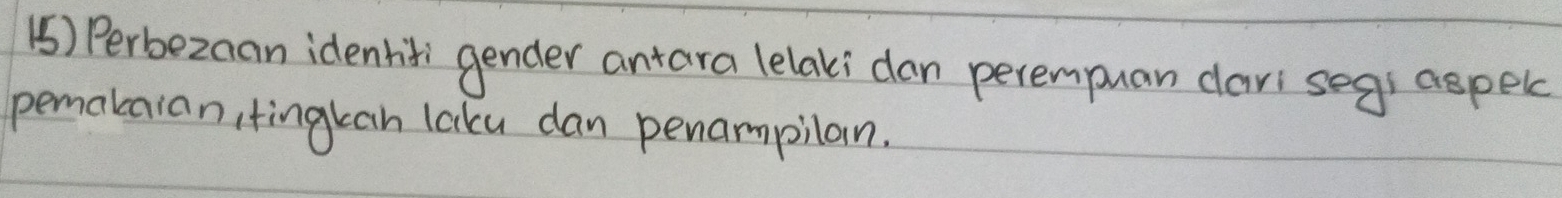 15) Perbezaan identiti gender antara lelaki dan perempuan dari segi aspek
pemakaian, tingkah laku dan penampilan.